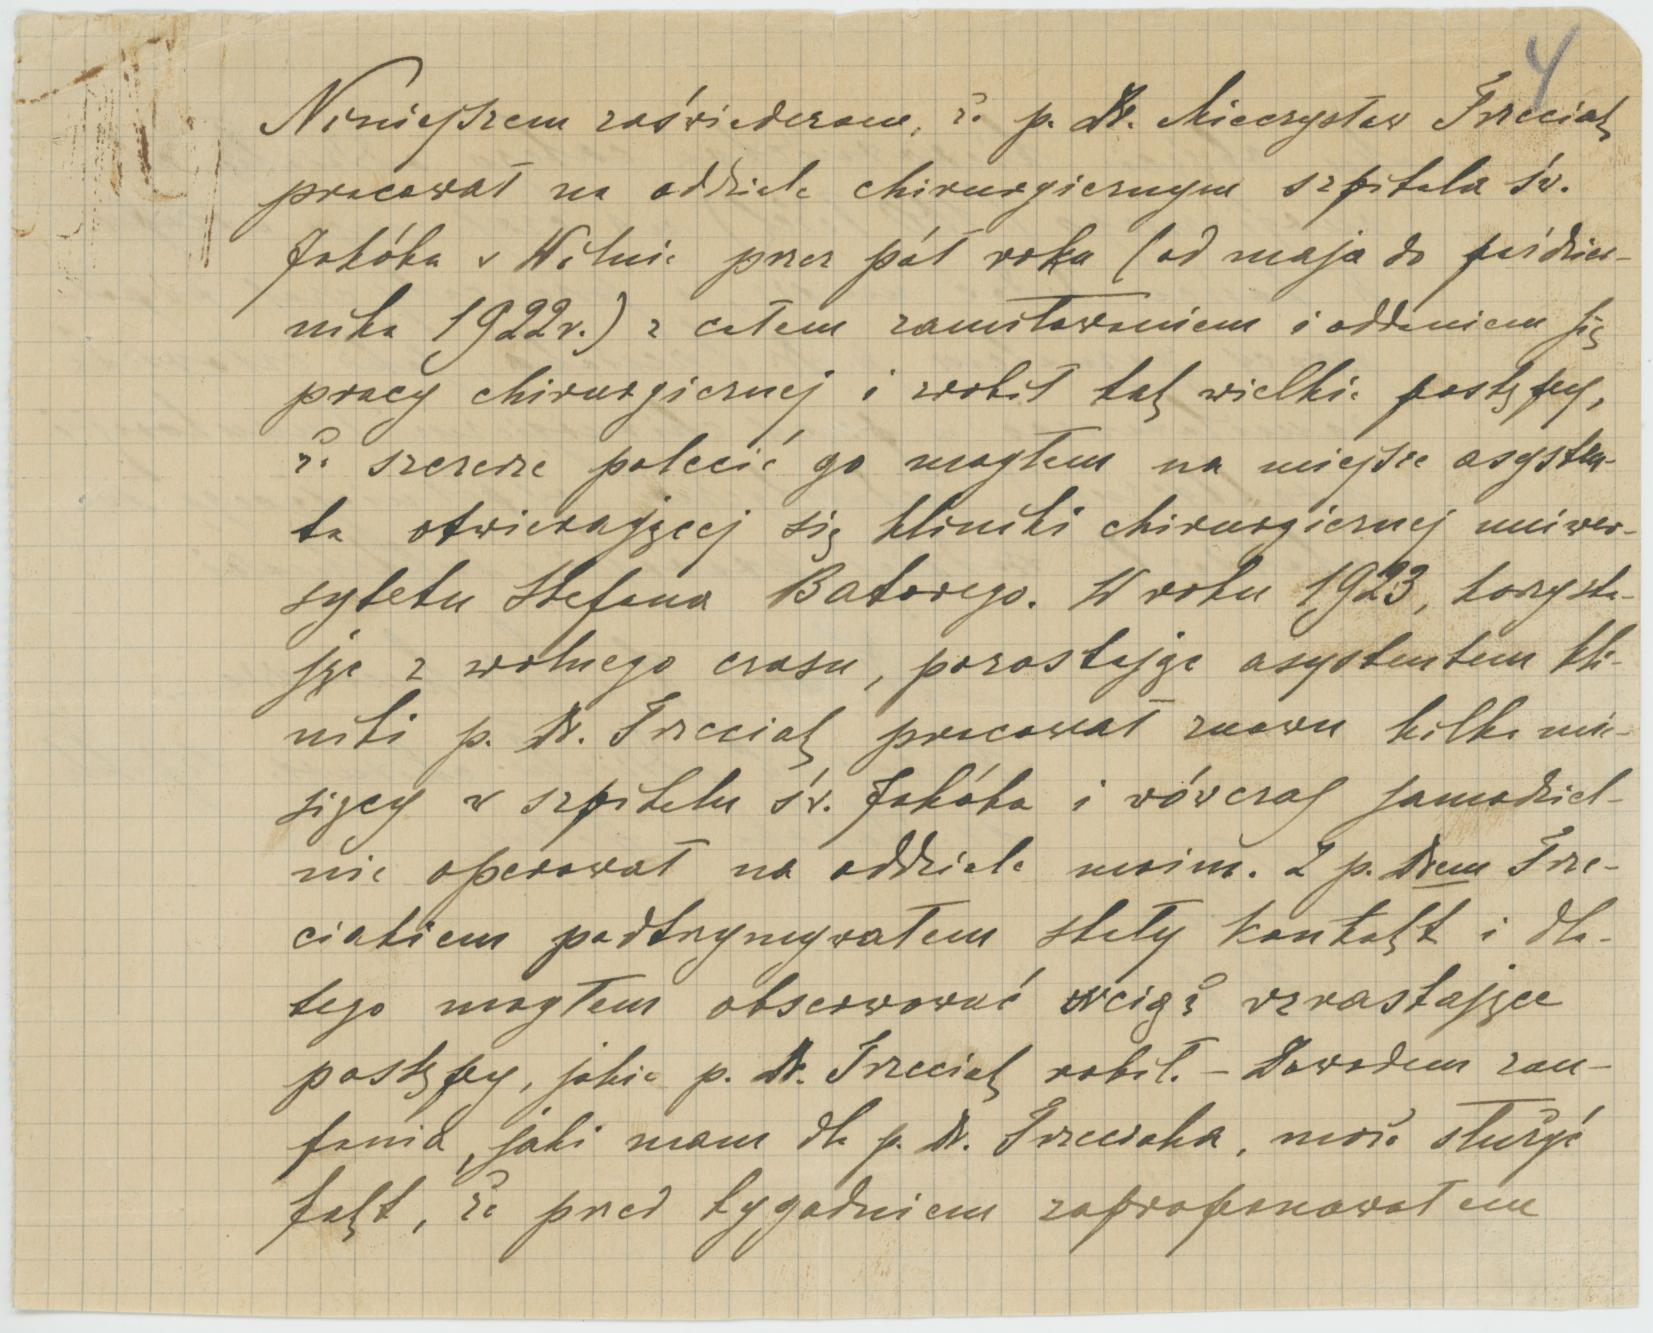 4
Niniejszem zaświadczam, że p. Dr. Mieczysław Trzeciak
pracował na oddziale chirurgicznym szpitala św.
Jakóba w Wilnie przez pół roku (od maja do paździer-
nika 1922 r.) z całem zamiłowaniem i oddaniem się
pracy chirurgicznej i zrobił tak wielkie postępy,
że szczerze polecić go mogłem na miejsce asysten-
ta otwierającej się kliniki chirurgicznej uniwer-
sytetu Stefana Batorego. W roku 1923, korzysta-
jąc z wolnego czasu, pozostając asystentem kli-
niki p. Dr. Trzeciak pracował znowu kilka mie-
sięcy w szpitalu św. Jakóba i wówczas samodziel-
nie operował na oddziale moim. Z p. Drem Trze-
ciakiem podtrzymywałem stały kontakt i dla-
tego mogłem obserwować wciąż wzrastające
postępy, jakie p. Dr. Trzeciak robił. – Dowodem zau-
fania, jaki mam dla p. Dr. Trzeciaka, może służyć
fakt, że przed tygodniem zaproponowałem